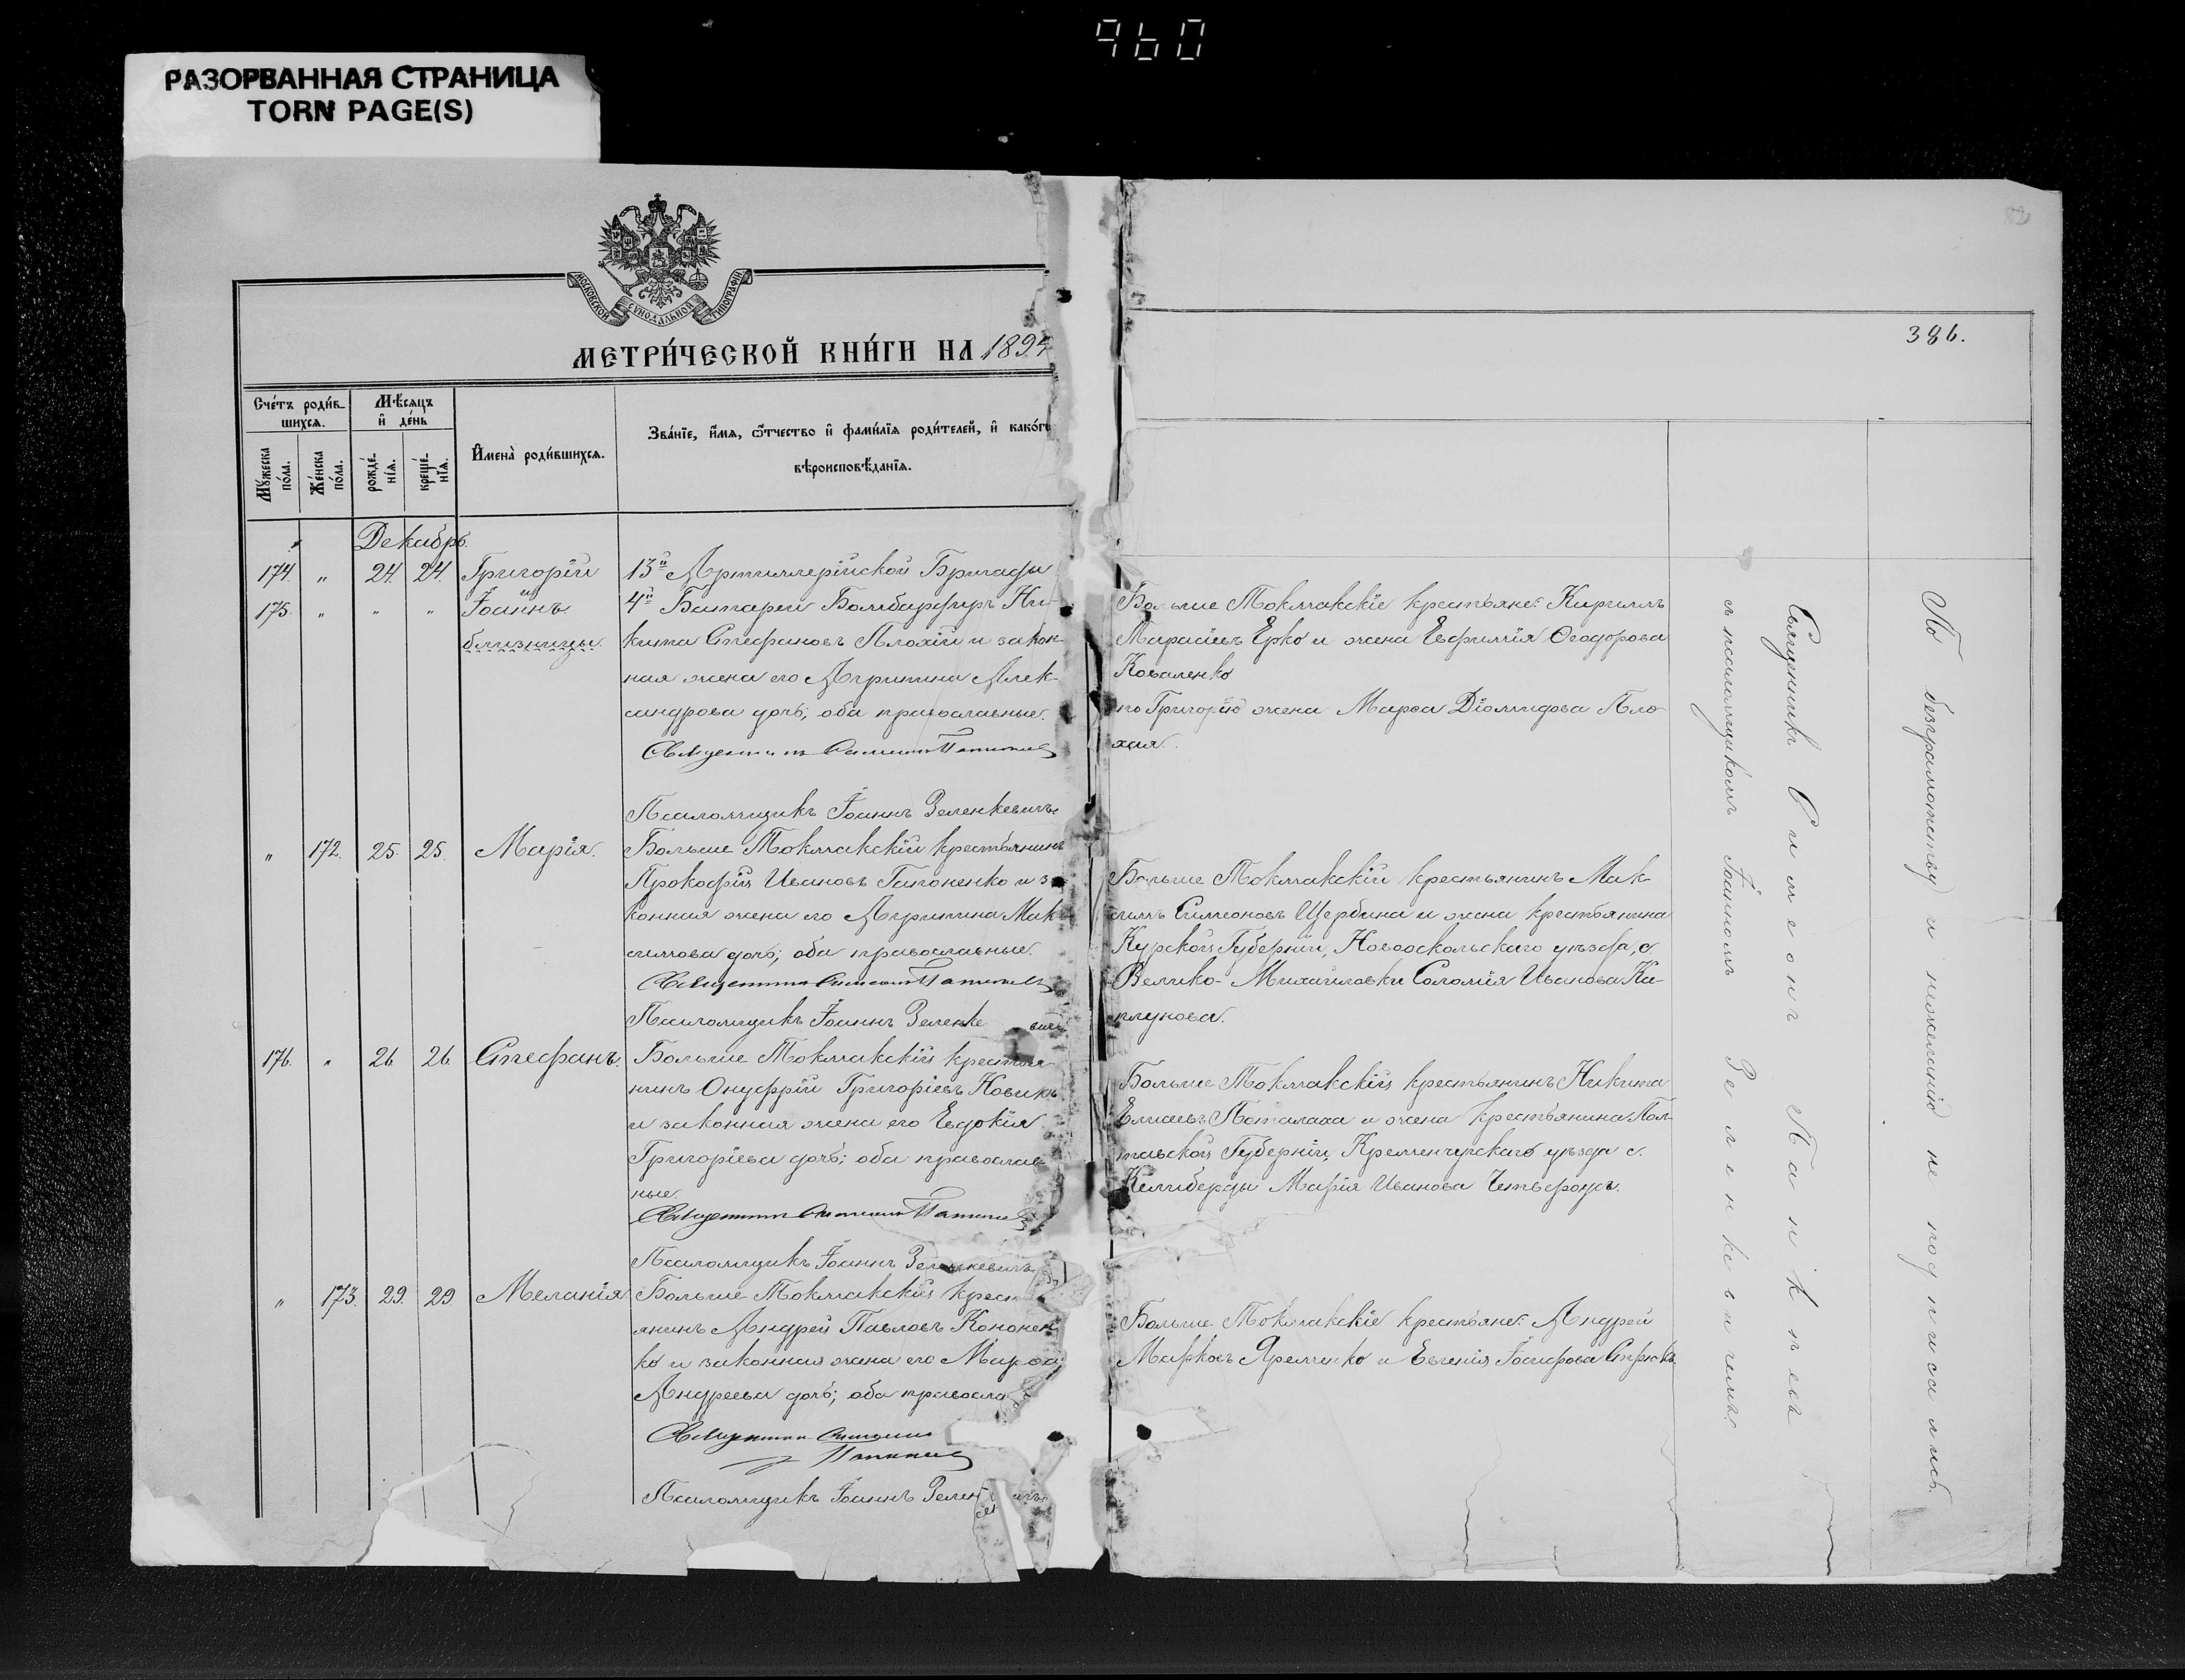 960
РАЗОРВАННАЯ СТРАНИЦА
TORN PAGE(S)
МОСКОВСКОЙ СѴНОДАЛЬНОЙ ТИПОГРАФІИ
МЕТРИ́ЧЕСКОЙ КНИ́ГИ НА 1894
Сче́тъ роди́в-
шихся.
Мѣ́сяцъ
и҆ де́нь
Мꙋ́жеска
по́ла.
Же́нска
по́ла.
рожде́-
нїя.
креще́-
нїя.
И҆мена̀ роди́вшихся.
Зва́нїе, и҆́мя, ѻ҆́тчество и҆ фами́лїя роди́телей, и҆ како́гѡ
вѣроисповѣ́данїя.
Декабрь.
174. " 24. 24. Григорій 13й Артиллерійской Бригады
и
175. " " " Іоаннъ 4й Батареи Бомбардиръ Ни-
близнецы. кита Стефановъ Плохій и закон-
ная жена его Агрипина Алек-
сандрова дочь; оба православные.
Священникъ Симеонъ
Псаломщикъ Іоаннъ Зеленкевичъ
" 172. 25. 25. Марія. Больше Токмакскій крестьянинъ
Прокофій Ивановъ Гапоненко и за
конная жена его Агрипина Мак
симова дочь; оба православные.
Священникъ Симеонъ
Псаломщикъ Іоаннъ Зеленкевичъ
176. " 26 26 Стефанъ. Больше Токмакскій крестья
нинъ Онуфрій Григоріевъ Новикъ
и законная жена его Евдокія
Григоріева дочь; оба православ-
ные.
Священникъ Симеонъ
Псаломщикъ Іоаннъ Зеленкевичъ
" 173. 29. 29 Меланія Больше Токмакскій крест
янинъ Андрей Павловъ Кононен
ко и законная жена его Марѳа
Андреева дочь; оба правосла
Священникъ Симеонъ
Псаломщикъ Іоаннъ Зелен ичъ
386.
Больше Токмакскіе крестьяне: Кириллъ
Тарасіевъ Ерко и жена Евфимія Ѳеодорова
Коваленко
по Григорію жена Марѳа Діомидова Пло
хая.
Больше Токмакскій крестьянинъ Мак
симъ Симеоновъ Щербина и жена крестьянина
Курской Губерніи, Новооскольскаго уѣзда, с.
Велико-Михайловки Соломія Иванова Ка-
плунова.
Больше Токмакскій крестьянинъ Никита
Елисеевъ Поталаха и жена крестьянина Пол-
тавской Губерніи, Кременчугскаго уѣзда с.
Келиберды Марія Иванова
Больше Токмакскіе крестьяне: Андрей
Марковъ Яременко и Евгенія Іосифова
Священникъ Симеонъ
съ псаломщикомъ Іоанномъ Зеленкевичемъ.
По безграмотству и нежеланію не подписались.